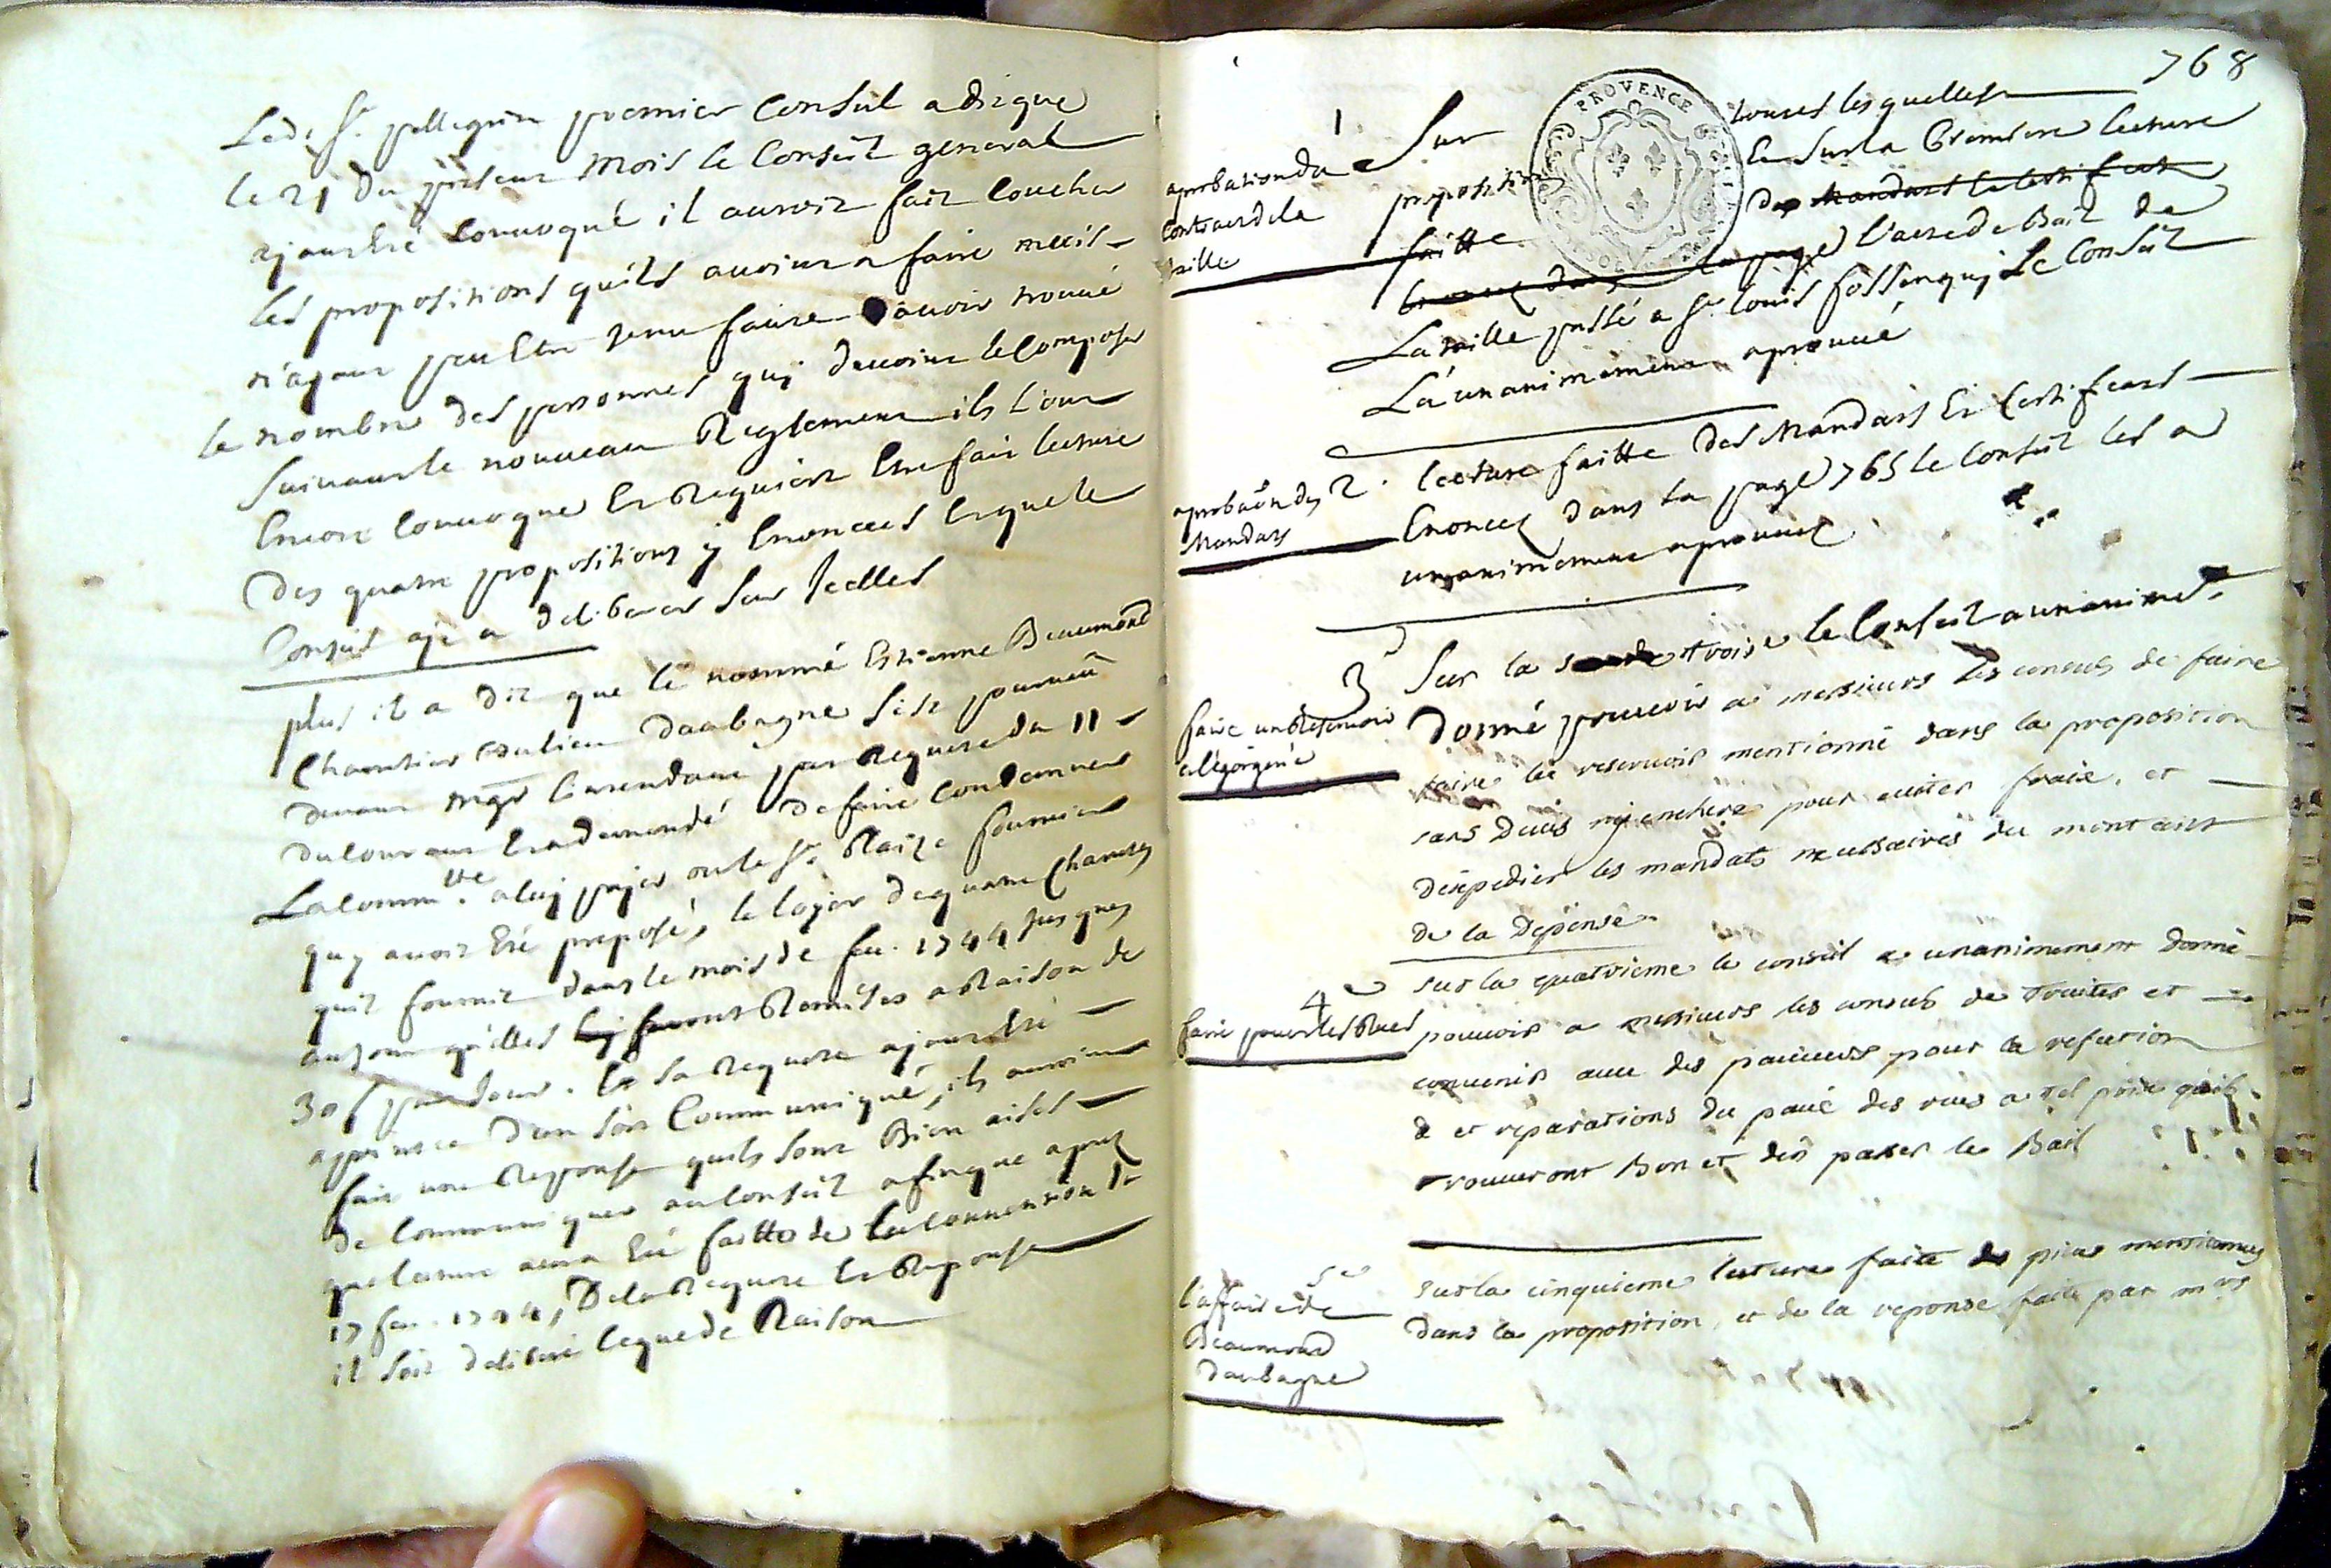 Led. Sr. pellegrin premier Consul a dit que
le 21 du present mois le Conseil general
ajourdhé convoqué il auroit fait coucher
les propositions quils avoint a faire mais
n'ayant peu Etre tenu faute d'avoir trouvé
le nombre des personnes quj devoint le Composer
Suivant le nouveau Reglement ils l'ont
Encore Convoqué Et Requiert Etre fait lecture
Des quatre propositions y Enoncées Et que le
Conseil aje a deliberer Sur Jcelles
plus il a dit que le nommé Estienne Beaumond
Charretier du lieu daubagne s'est pourveu
devant Mgr l'intendant par Requete du 11
du Courant Et a demandé de faire Condamner
La Commté. a luy payer ou le Sr. Blaize fournier
quy avoit Eté preposé, le loyer de quatre Charrettes
quil fournit dans le mois de fev. 1744 Jusques
au jour quelles luj feront Remises a Raison de
30 s par Jour. Et Sa Requete ajourdhé
appointée d'un soit Communiqué, ils auroint
fait une Reponse quils sont Bien aises
de Communiquer au Conseil afin que apres
que lecture aura Eté faitte de la Convention du
17 fev. 1744, De la Requete Et Reponse
il soit deliberé Ce que de Raison
768
1
aprobation du
Contract de la
taille
Sur
proposition
faitte
PROVENCE
toutes lesquelles
Et Sur la Premiere lecture
des Mandats Et Certificats
Enoncez dans la page l'acte de Bail de
La taille passé a Sr. louis fossenquj Le Conseil
La unanimement aprouvé
aprobaôn des
Mandats
2. lecture faitte des Mandats Et Certificats
Enoncez dans la page 765 le Conseil les a
unanimement aprouvez
faire un Reservoir
a l'egorgerie
3 Sur la troise le Conseil a unanimet.
Donné pouvoir a messieurs les consuls de faire
faire le reservoir mentionné dans la proposition
sans Devis nj enchere pour eviter fraix. et
D'expedier les mandats necessaires du montant
de la Depense
faire paver les Rues
4e sur la quatrieme le conseil a unanimement donné
pouvoir a messieurs les consuls de traiter et
convenir avec des paveurs pour la refection
& et reparations du pavé des rues a tel prix quils
trouveront Bon et d'en passer le Bail
l'affaire de
Beaumond
daubagne
5e
sur la cinquieme lecture faite des pieces mentionnées
dans la proposition, et de la reponse faite par mrs